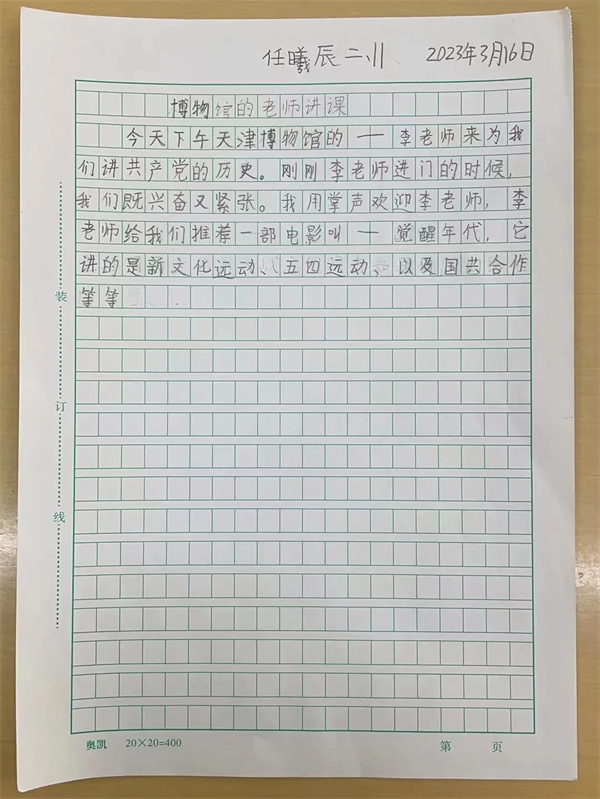 任曦辰 二、川 2023年3月16日
博物馆的老师讲课
今天下午天津博物馆的一一李老师来为我
们讲共产党的历史。刚刚李老师进门的时候，
我们既兴奋又紧张。我用掌声欢迎李老师，李
老师给我们推荐一部电影叫一一觉醒年代，它
讲的是新文化远动、五四远动、以及国共合作
等等
装
订
线
奥凯 20×20=400 第 页